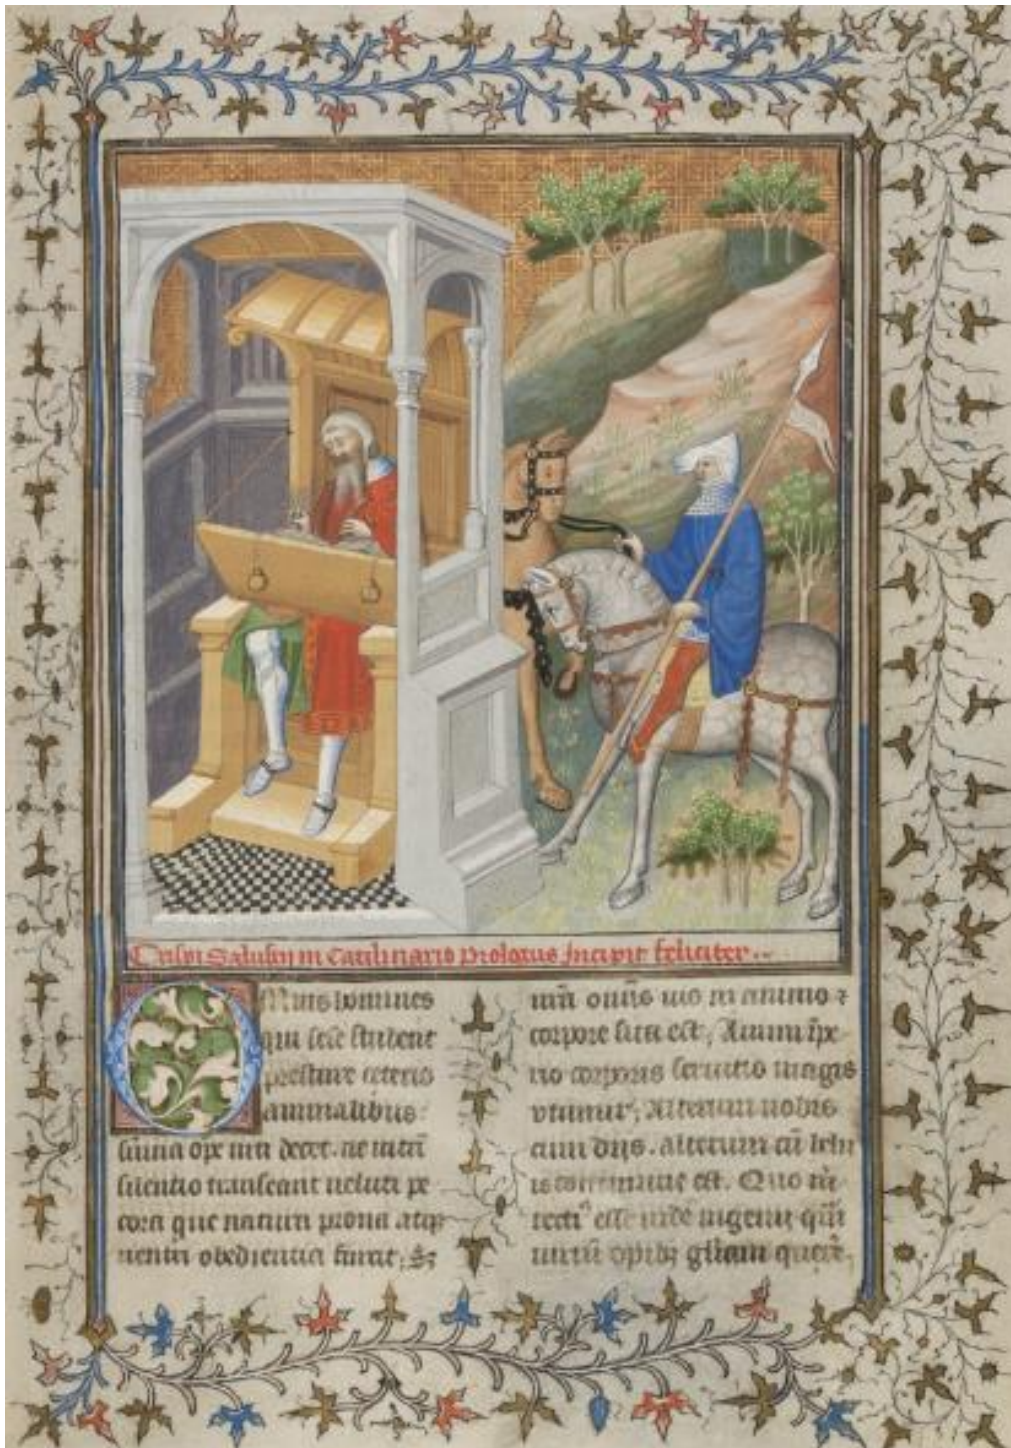 Crispi Salustij in Catilinario prologus Incipit feliciter..
Omnis homines
qui sese student
prestare ceteris
animalibus
suma ope niti decet. ne vitā
silentio transeant veluti pe
cora que natura prona atq
ventri obedientia finxit; Sz
nrā omīs vis in animo &
corpore sita est; Animi īpe
rio corporis servitio magis
utimur; Alterum nobis
cum diis. alterum cū belu
is commune est. Quo m̄
recti esse ingenii qūi
viriū opibz gl̄iam querē